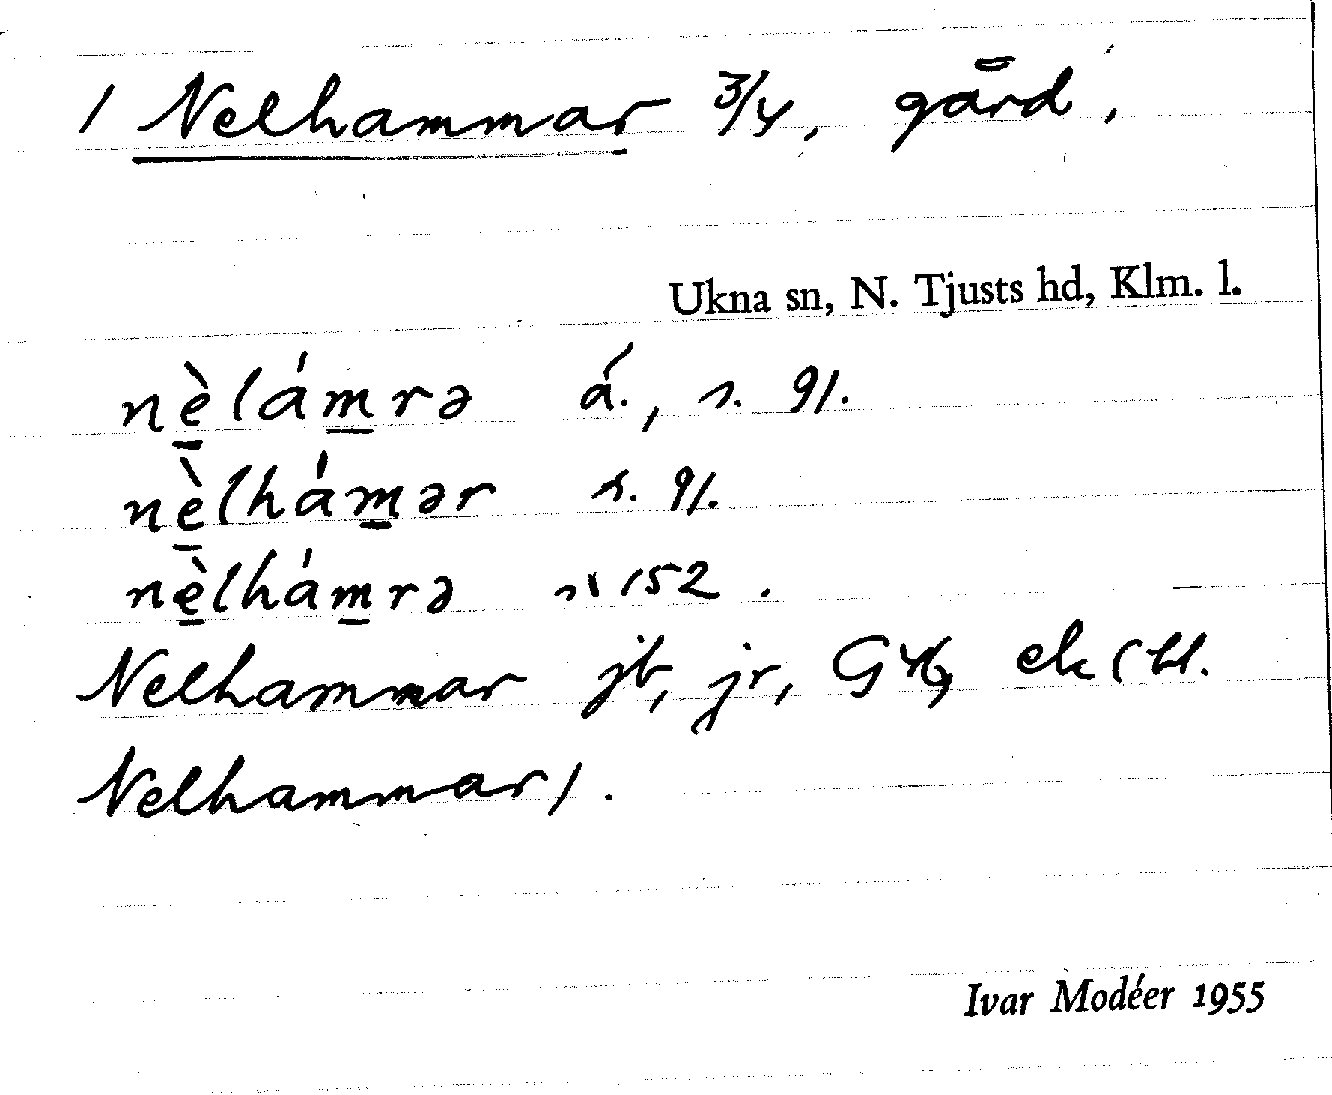 1 Nelhammar 3/4, gård,
Ukna sn, N. Tjusts hd, Klm. l.
nèlámrə á., s. 91.
nèlhámər s. 91.
nèlhámrə s. 152.
Nelhammar jb, jr, G ek (bl.
Nelhammar).
Ivar Modéer 1955